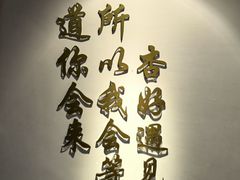 杏好遇见
所以我会等
道你会来